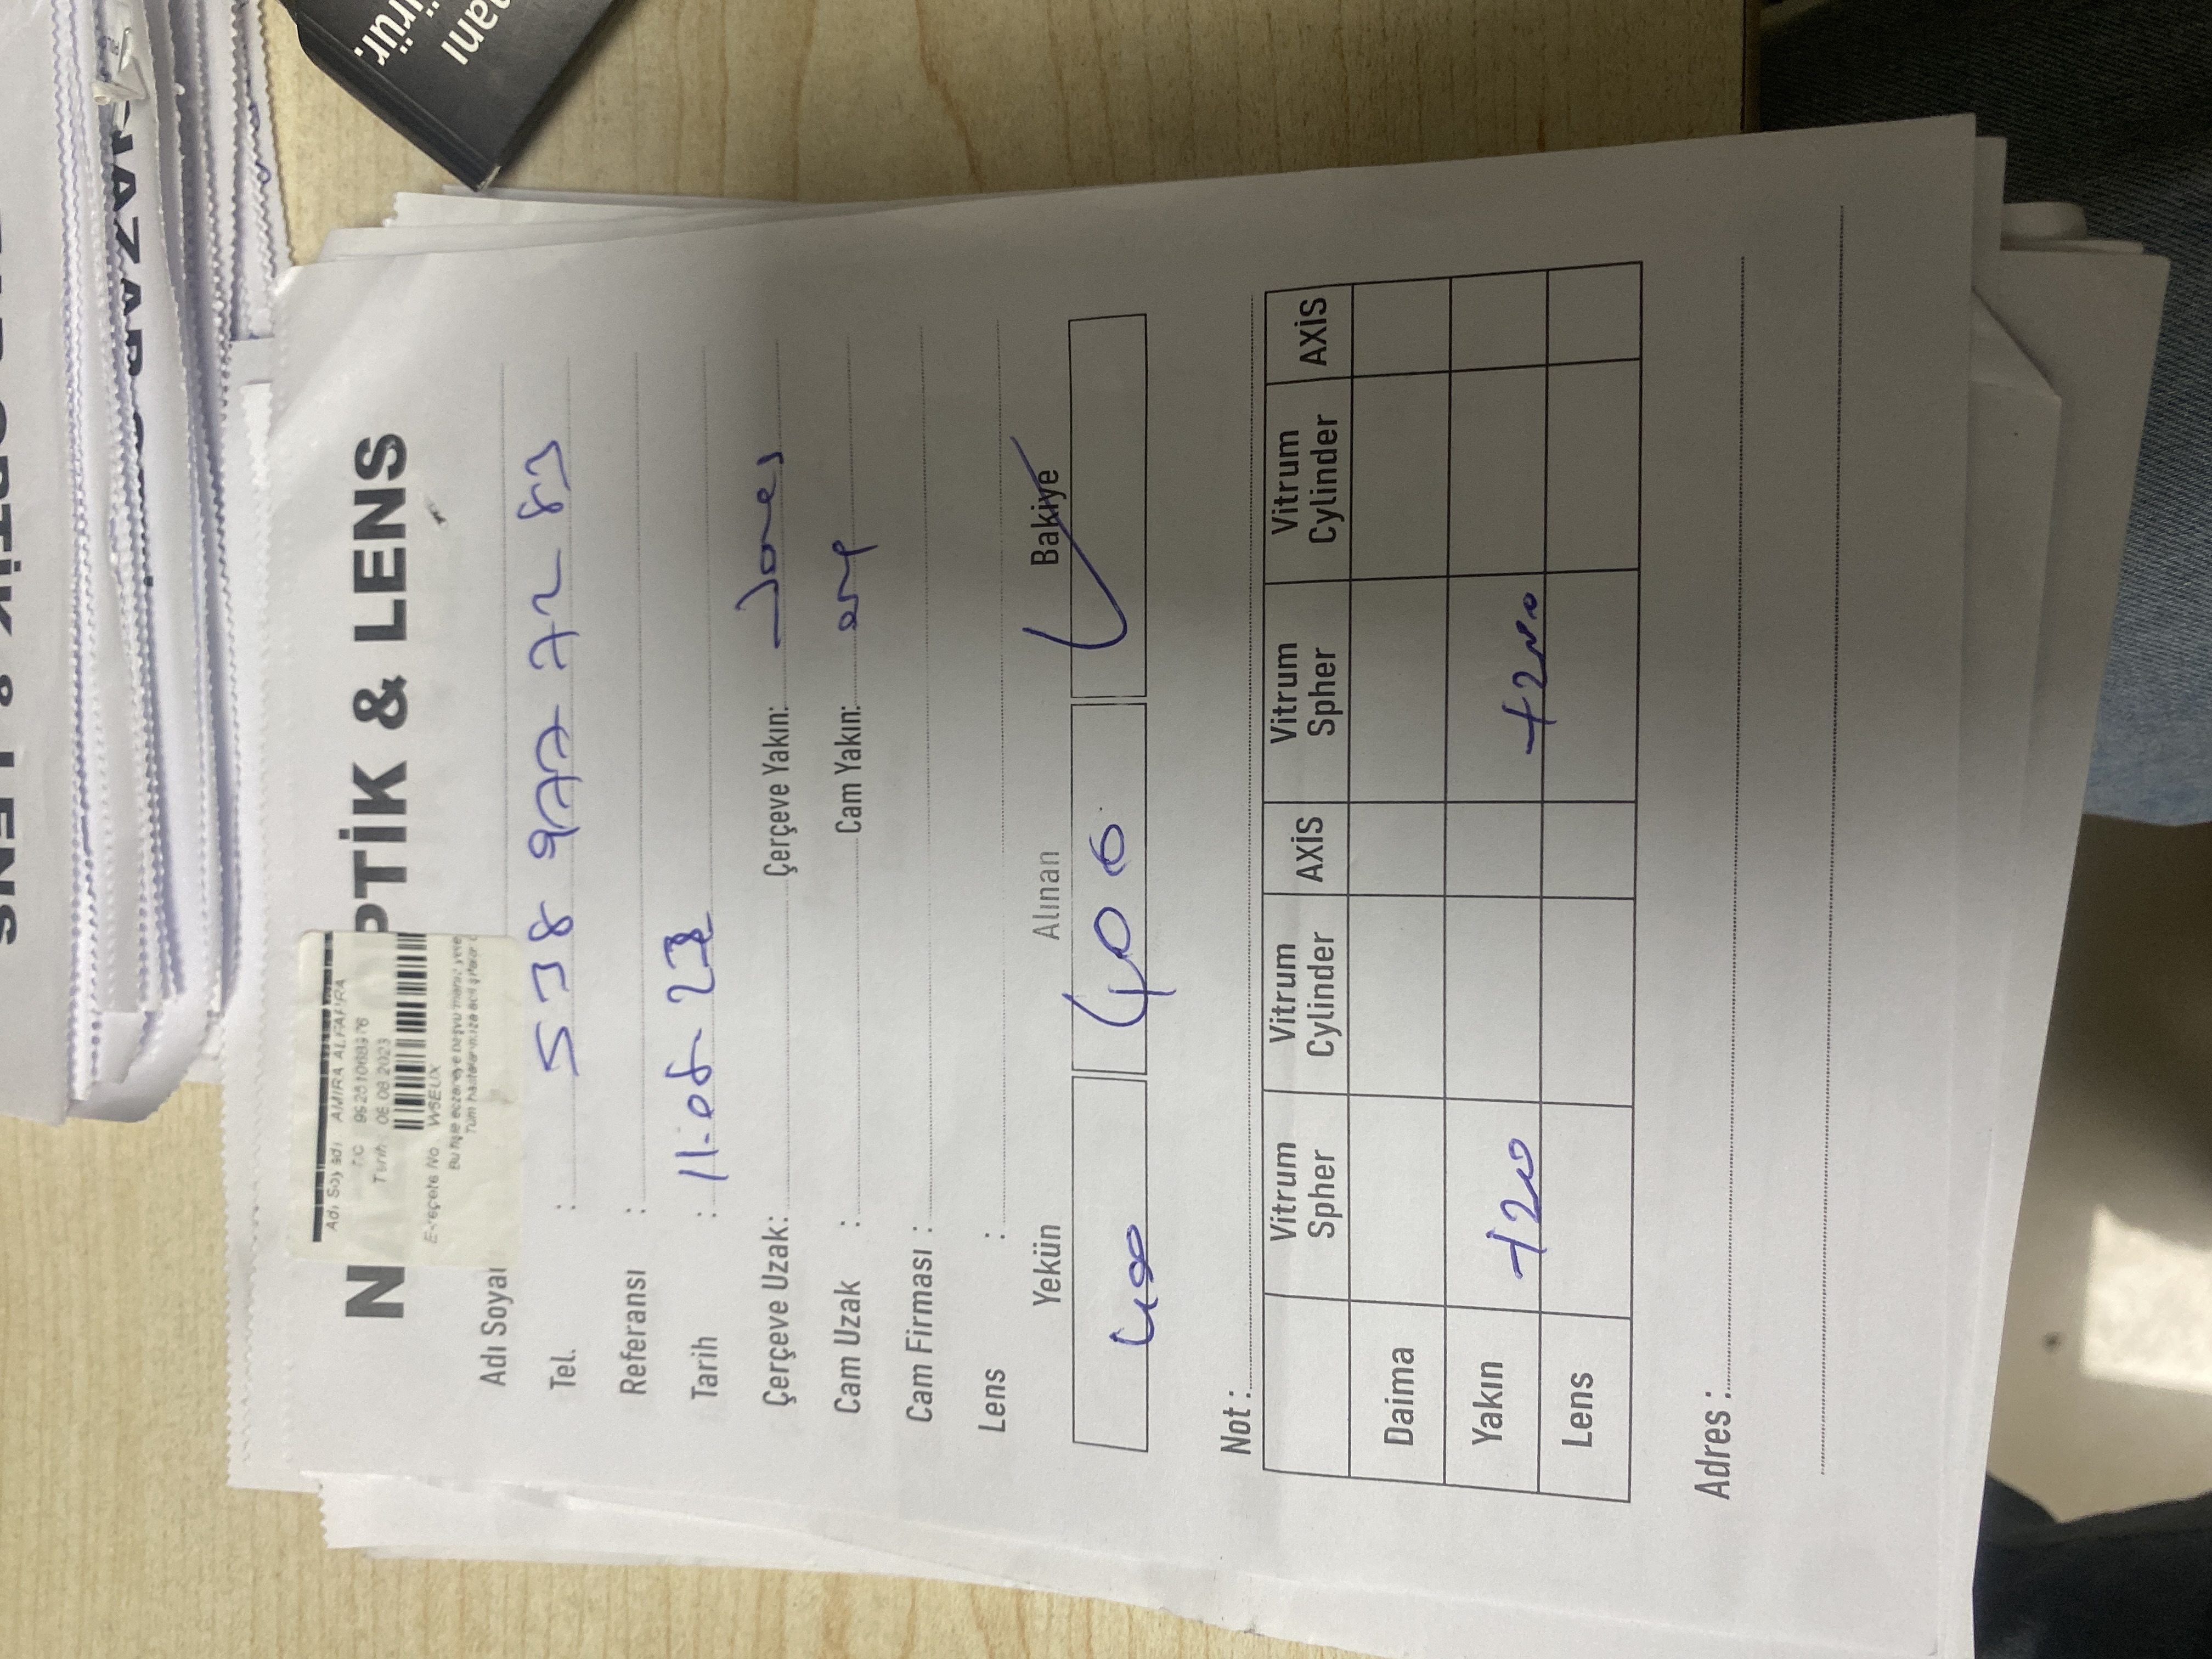 OPTİK & LENS
NAZAR
N PTİK & LENS
Adı Soyadı : AMIRA
TC
Tarih : 08.08.2023
E-reçete No W5EUX
Bu fişle eczaneye
Tüm hastalarımıza acil şifalar
Adı Soya
Tel. : 538 977 72 83
Referansı :
Tarih : 11.08.23
Çerçeve Uzak: Çerçeve Yakın: Jones
Cam Uzak : Cam Yakın:
Cam Firması :
Lens :
Yekün Alınan Bakiye
400 400
Not :
Vitrum Spher Vitrum Cylinder AXİS Vitrum Spher Vitrum Cylinder AXİS
Daima
Yakın +20 +200
Lens
Adres :